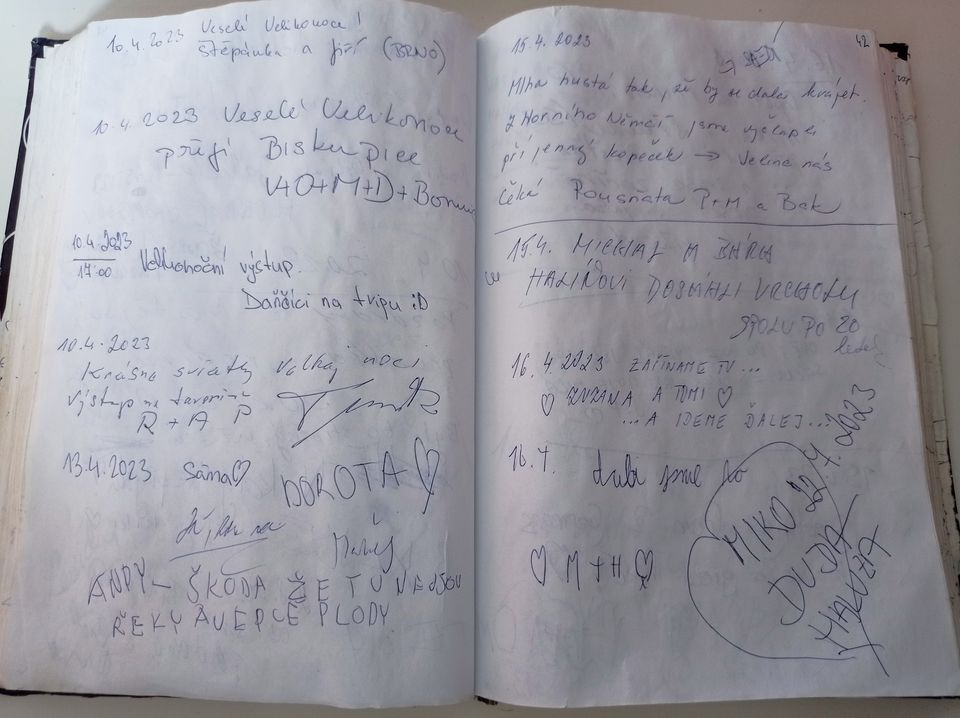 10.4.2023 Veselé Velikonoce!
Štěpánka a Jiří (BRNO)
10.4.2023 Veselé Velikonoce
přejí Biskupice
V+O+M+D+Bonnie
10.4.2023
17:00 Velikonoční výstup.
Daňčíci na tripu :D
10.4.2023
Krásne sviatky Veľkej noci
Výstup na
R + A P
13.4.2023 Sáma♡ DOROTA♡
Matúš
ANDY – ŠKODA ŽE TU NEJSOU
ŘEKY A VEPLÉ PLODY
42
15.4.2023
Mlha hustá tak, že by se dala krájet.
Z Horního Němčí jsme vyšlapali
příjemný kopeček → Velina nás
čeká Pousňata P+M a Bak
15.4. MICHAL A BÁRA
HALÍŘOVI DOSÁHLI VRCHOLU
SPOLU PO 20
letech
16.4.2023 ZAČÍNAME TU...
♡ ZUZANA A TOMI ♡
...A IDEME ĎALEJ...
16.4. dali jsme to
♡ M+H ♡
MIKO 22.4.2023
DUJDA
HALUZA